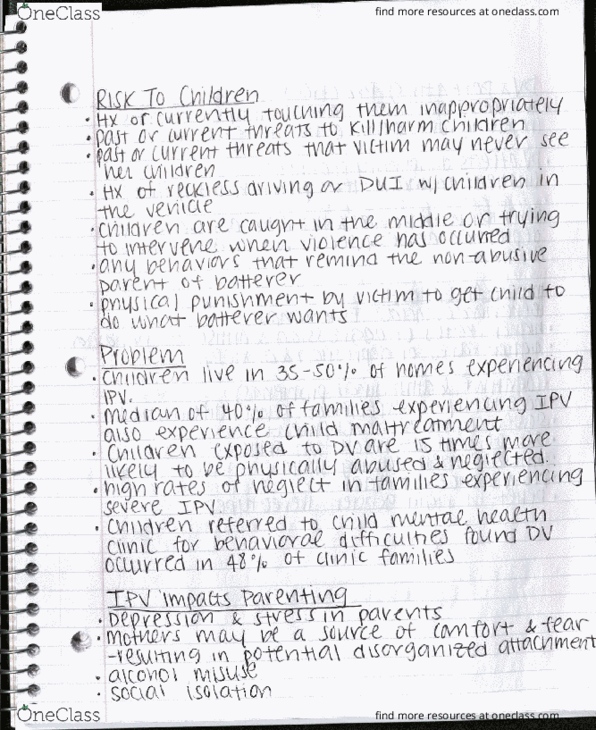 OneClass
find more resources at oneclass.com
Risk To Children
• Hx or currently touching them inappropriately
• past or current threats to kill/harm children
• past or current threats that victim may never see
her children
• Hx of reckless driving or DUI w/children in
the vehicle
• children are caught in the middle or trying
to intervene when violence has occurred
• any behaviors that remind the non-abusive
parent of batterer
• physical punishment by victim to get child to
do what batterer wants
Problem
• Children live in 35-50% of homes experiencing
IPV.
• median of 40% of families experiencing IPV
also experience child maltreatment
• Children exposed to DV are 15 times more
likely to be physically abused & neglected.
• high rates of neglect in families experiencing
severe IPV
• Children referred to child mental health
clinic for behavioral difficulties found DV
occurred in 48% of clinic families
IPV impacts Parenting
• Depression & stress in parents
• mothers may be a source of comfort & fear
-resulting in potential disorganized attachment
• alcohol misuse
• social isolation
OneClass
find more resources at oneclass.com